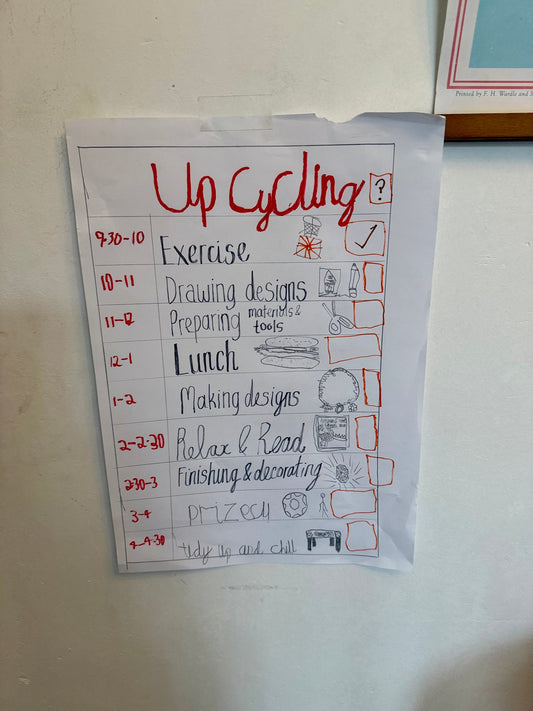 Printed by F. H. Wardle and
Up Cycling ?
9.30-10 Exercise
10-11 Drawing designs
11-12 Preparing materials &
tools
12-1 Lunch
1-2 Making designs
2-2.30 Relax & Read
2.30-3 Finishing & decorating
3-4
4-4.30 tidy up and chill